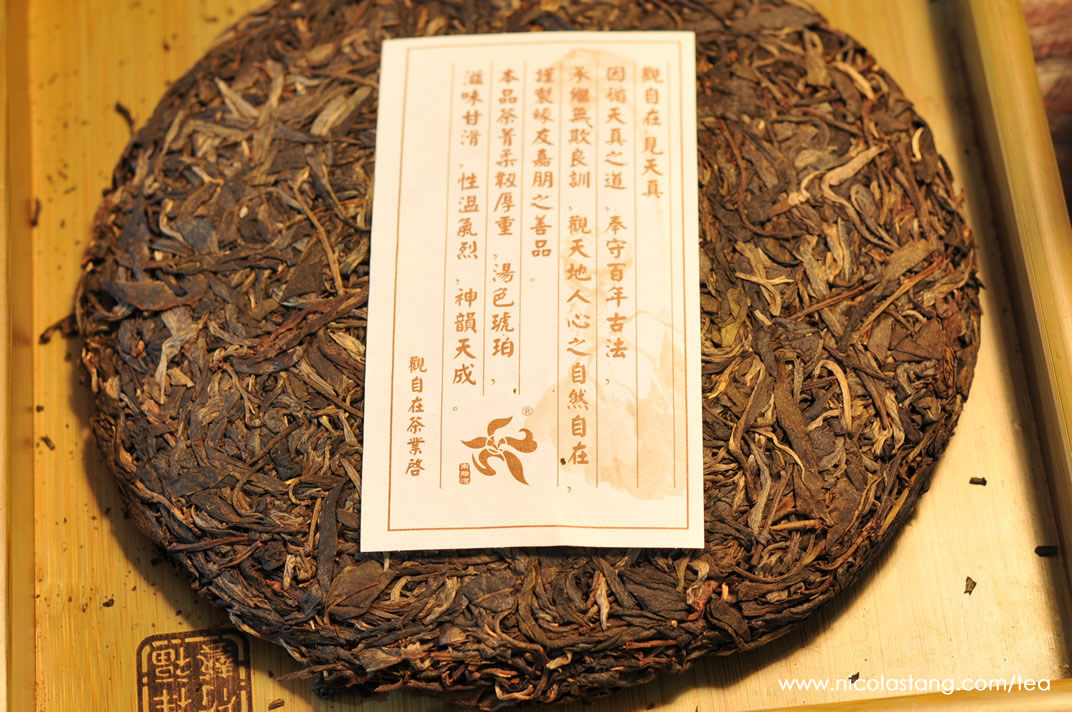 觀自在,見天真
因循天真之道,奉守百年古法,
承繼無欺良訓,觀天地人心之自然自在,
謹製緣友嘉朋之善品。
本品茶菁柔韌厚重,湯色琥珀,
滋味甘滑,性溫氣烈,神韻天成。
觀自在茶業啓
®
www.nicolastang.com/tea